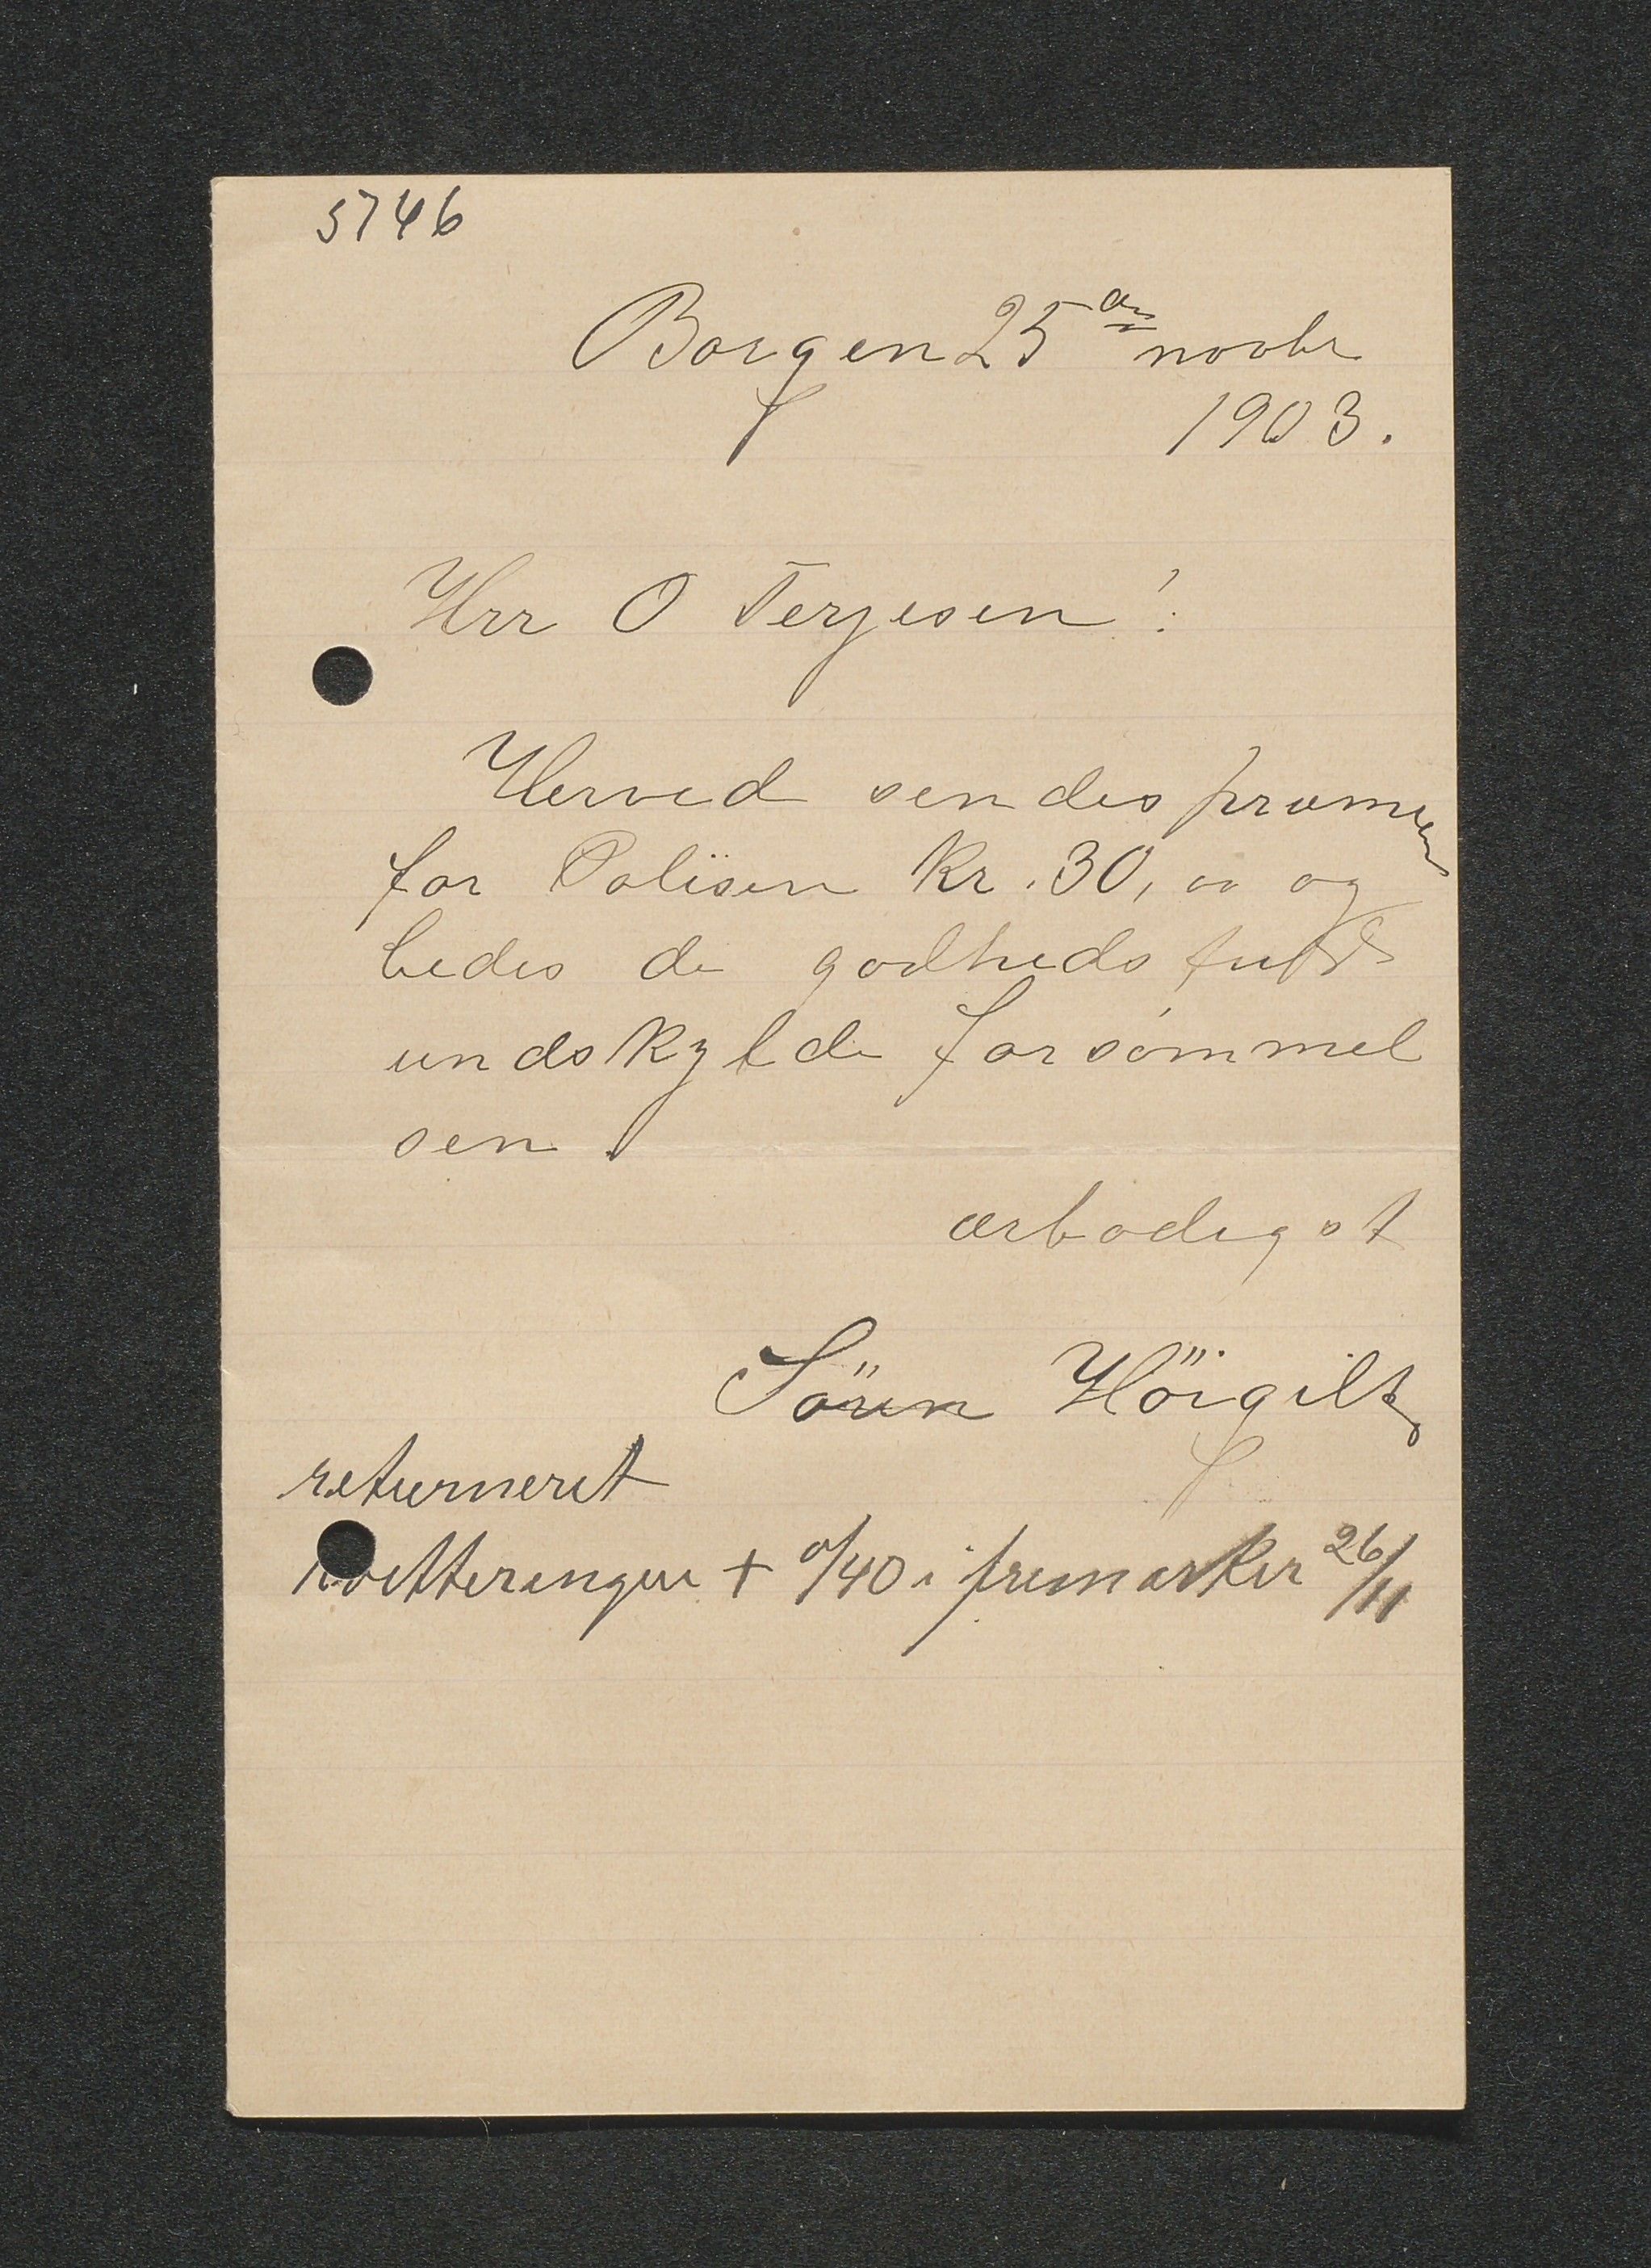 5746
Borgen 25de novbr
1903.
Hrr O Terjesen!
Herved sendes præmien
for Polisen Kr. 30,00 og
bedes de godhedsfuldt
undskylde forsömmel
sen.
ærbödigst
Sören Höigilt
returneret
kvitteringen + 0/40 i frimærker 26/11